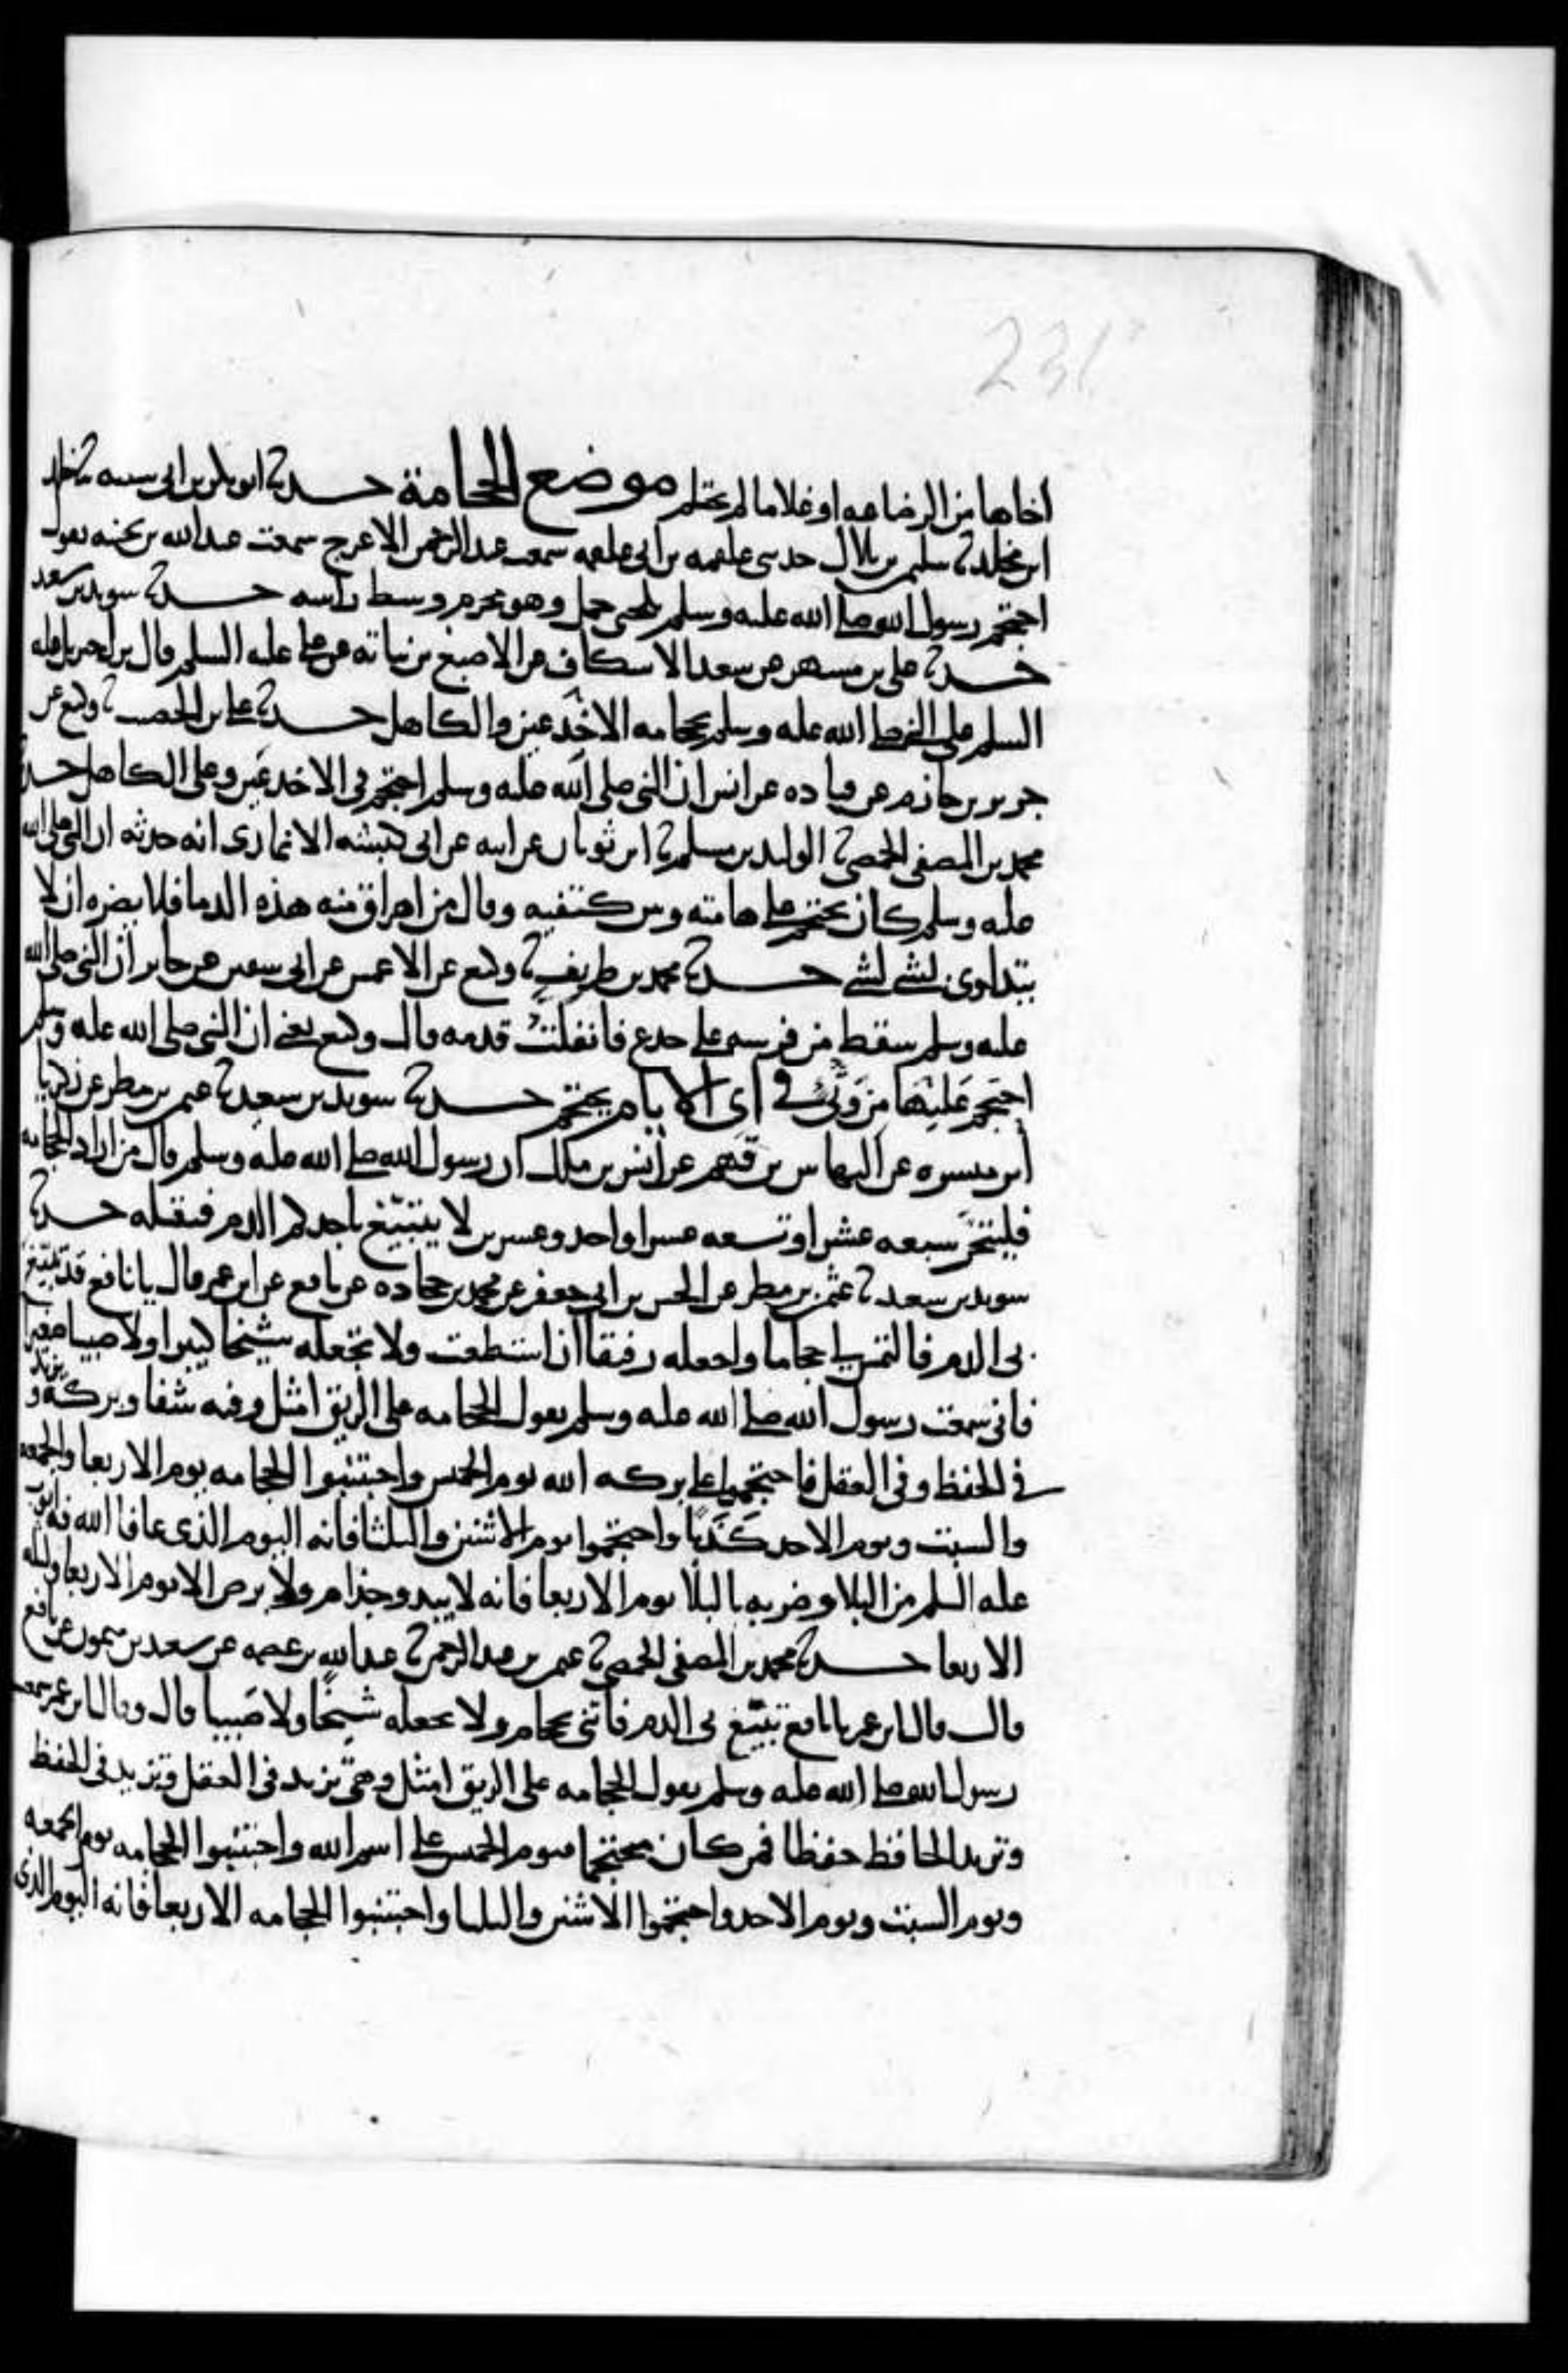 231
اخاها من الرضاعه او غلاما لم يحتلم موضع الحجامة حدثنا ابو بكر بن ابى شيبه ثنا خلد
ابن مخلد ثنا سليمن بن بلال حدثنى علقمه بن ابى علقمه سمعت عبد الرحمن الاعرج سمعت عبد الله بن بحينه يقول
احتجم رسول الله صلى الله عليه وسلم بلحى جمل وهو محرم وسط راسه حدثنا سويد بن سعيد
حدثنا على بن مسهر عن سعد الاسكاف عن الاصبغ بن نباته عن على عليه السلم قال نزل جبريل عليه
السلم على النبى صلى الله عليه وسلم بحجامه الاخدعين والكاهل حدثنا على بن الخصيب ثنا وكيع عن
جرير بن حازم عن قتاده عن انس ان النبى صلى الله عليه وسلم احتجم فى الاخدعين وعلى الكاهل حدثنا
محمد بن المصفى الحمصى ثنا الوليد بن مسلم ثنا ابن ثوبان عن ابيه عن ابى كبشه الانمارى انه حدثه ان النبى صلى الله
عليه وسلم كان يحتجم على هامته وبين كتفيه وقال من اهراق منه هذه الدما فلا يضره ان لا
يتداوى بشى لشى حدثنا محمد بن طريف ثنا وكيع عن الاعمش عن ابى سفين عن جابر ان النبى صلى الله
عليه وسلم سقط من فرسه على جذع فانفلتت قدمه قال وكيع يعنى ان النبى صلى الله عليه وسلم
احتجم عليها من وثى فى اى الايام يحتجم حدثنا سويد بن سعيد ثنا عثمن بن مطر عن زكريا
ابن ميسره عن النهاس بن قهم عن انس بن ملك ان رسول الله صلى الله عليه وسلم قال من اراد الحجامه
فليتحر سبعه عشر او تسعه عشر او احد وعشرين لا يتبيغ باحدكم الدم فيقتله حدثنا
سويد بن سعيد ثنا عثمن بن مطر عن الحسن بن ابى جعفر عن محمد بن جحاده عن نافع عن ابن عمر قال يا نافع قد تبيغ
بى الدم فالتمس لى حجاما واجعله رفيقا ان استطعت ولا تجعله شيخا كبيرا ولا صبيا صغيرا
فانى سمعت رسول الله صلى الله عليه وسلم يقول الحجامه على الريق امثل وفيه شفا وبركه وتزيد
فى الحفظ وفى العقل فاحتجموا على بركه الله يوم الخميس واجتنبوا الحجامه يوم الاربعا والجمعه
والسبت ويوم الاحد واحتجموا يوم الاثنين والثلثا فانه اليوم الذى عافا الله فيه ايوب
عليه السلم من البلا وضربه بالبلا يوم الاربعا فانه لا يبدو جذام ولا برص الا يوم الاربعا وليله
الاربعا حدثنا محمد بن المصفى الحمصى ثنا عثمن بن عبد الرحمن ثنا عبد الله بن عصمه عن سعيد بن ميمون عن نافع
قال قال ابن عمر يا نافع تبيغ بى الدم فاتنى بحجام ولا تجعله شيخا ولا صبيا قال وقال ابن عمر سمعت
رسول الله صلى الله عليه وسلم يقول الحجامه على الريق امثل وهى تزيد فى العقل وتزيد فى الحفظ
وتزيد الحافظ حفظا فمن كان محتجما فيوم الخميس على اسم الله واجتنبوا الحجامه يوم الجمعه
ويوم السبت ويوم الاحد واحتجموا الاثنين والثلثا واجتنبوا الحجامه الاربعا فانه اليوم الذى